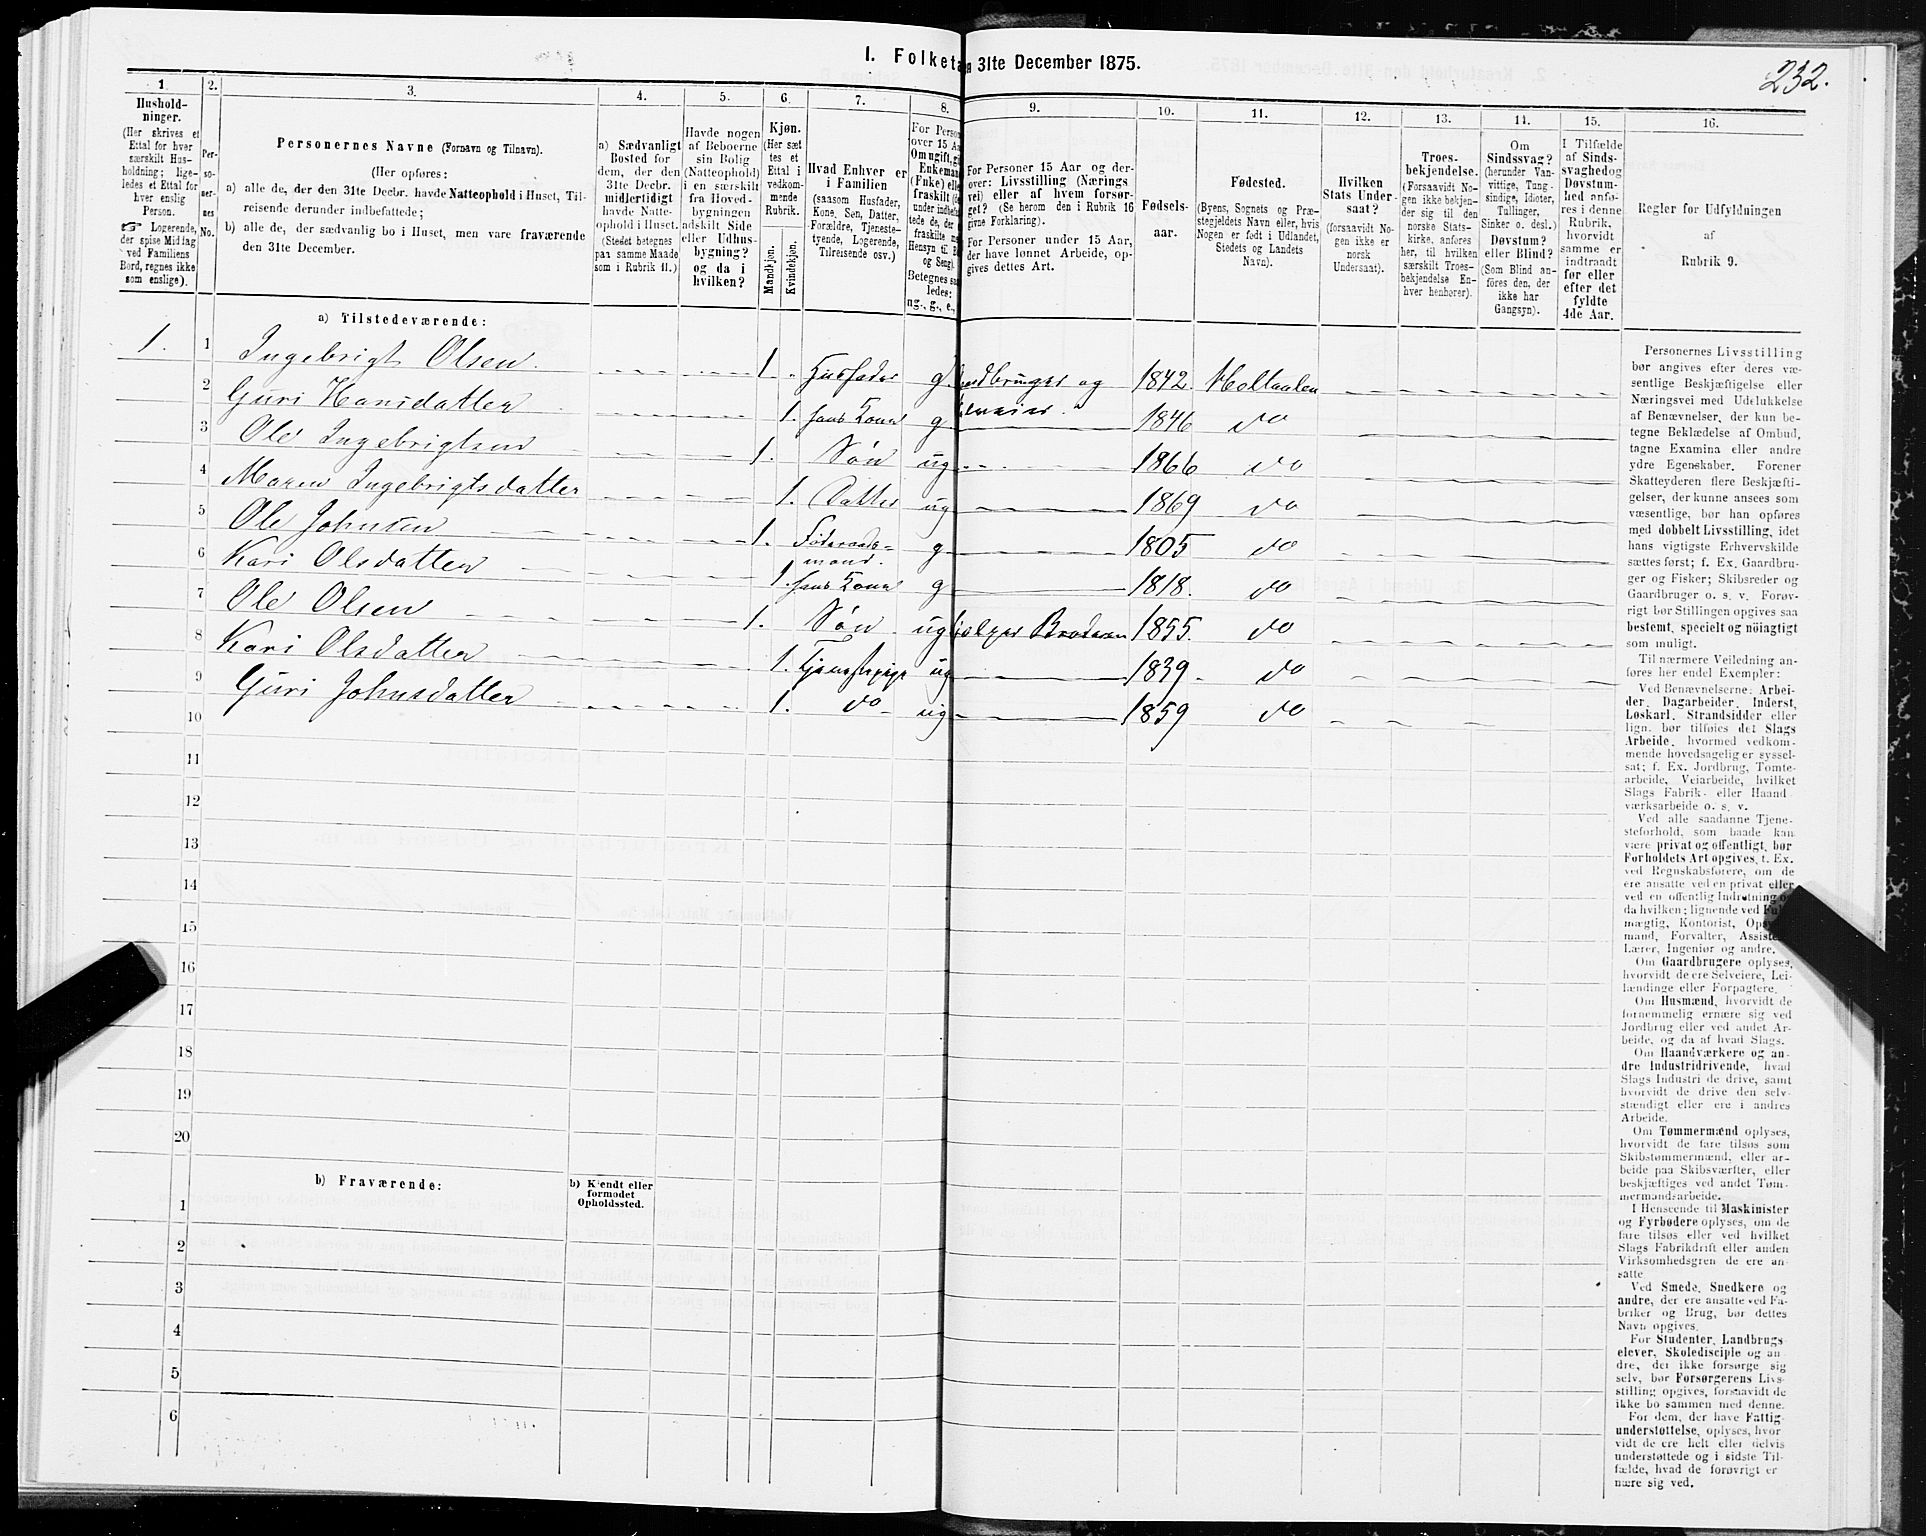 232.
I. Folketa
a 31te December 1875.
1.
2.
3.
4.
5.
6.
7.
8.
9.
10.
11.
12.
13.
14.
15.
16.
Hushold-
ninger.
(Her skrives et
Ettal for hver
særskilt Hus-
holdning; lige-
ledes et Ettal for
hver enslig
Person.
☞ Logerende,
der spise Middag
ved Familiens
Bord, regnes ikke
som enslige).
Per-
so-
ner-
nes
No.
Personernes Navne (Fornavn og Tilnavn).
(Her opføres:
a) alle de, der den 31te Decbr. havde Natteophold i Huset, Til-
reisende derunder indbefattede;
b) alle de, der sædvanlig bo i Huset, men vare fraværende
den 31te December.
a) Sædvanligt
Bosted for
dem, der den
31te Decbr.
midlertidigt
havde Natte-
ophold i Huset.
(Stedet betegnes
paa samme Maade
som i Rubrik 11.)
Havde nogen
af Beboerne
sin Bolig
(Natteophold)
i en særskilt
fra Hoved-
bygningen
adskilt Side
eller Udhus-
bygning?
og da i
hvilken?
Kjøn.
(Her sæt
tes et
Ettal i
vedkom-
mende
Rubrik.
Mandkjøn.
Kvindekjøn.
Hvad Enhver er
i Familien
(saasom Husfader,
Kone, Søn, Datter,
Forældre, Tjeneste-
tyende, Logerende,
Tilreisende osv.)
For Person
over 15 Aa
Om ugift, gi
Enkemand
(Fuke) elle
fraskilt (de
under indbefa
tede de, der
fraskilte m
Hensyn til B
og Seng).
Betegnes saa
ledes:
ug., g., e.,
For Personer 15 Aar og der-
over: Livsstilling (Nærings
vei) eller af hvem forsør-
get? (Se herom den i Rubrik 16
givne Forklaring).
For Personer under 15 Aar,
der have lønnet Arbeide, op-
gives dettes Art.
Fødsels-
aar.
Fødested.
(Byens, Sognets og Præ-
stegjeldets Navn eller, hvis
Nogen er født i Udlandet,
Stedets og Landets
Navn).
Hvilken
Stats Under-
saat?
(forsaavidt No-
gen ikke er
norsk
Undersaat).
Troes-
bekjendelse.
(Forsaavidt No-
gen ikke bekjen-
der sig til den
norske Stats-
kirke, anføres
her, til hvilken
særskilt Troes-
bekjendelse En-
hver henhører).
Om
Sindssvag?
(herunder Van-
vittige, Tung-
sindige, Idioter,
Tullinger,
Sinker o. desl.)
Døvstum?
eller Blind?
(Som Blind an-
føres den, der
ikke har
Gangsyn).
I Tilfælde
af Sinds-
svaghed og
Døvstum-
hed anfø-
res i denne
Rubrik,
hvorvidt
samme er
indtraadt
før eller
efter det
fyldte
4de Aar.
Regler for Udfyldningen
af
Rubrik 9.
a) Tilstedeværende:
1. 1 Ingebrigt Olsen. 1. Husfader g. og 1842. Holtaalen
2 Guri Hansdatter 1. hans Kone g 1846 do
3 Ole Ingebrigtsen 1. Søn ug 1866 do
4 Maren Ingebrigtsdatter 1. Datter ug 1869 do
5 Ole Johnsen 1. Føderaads=
mand. g 1805 do
6 Kari Olsdatter 1. hans Kone g 1818. do
7 Ole Olsen 1. Søn ug Broderen 1855. do
8 Kari Olsdatter 1. Tjenestepige ug 1839 do
9 Guri Johnsdatter 1. do ug 1859 do
10
11
12
13
14
15
16
17
18
19
20
b) Fraværende:
b) Kjendt eller
formodet
Opholdssted.
1
2
3
4
5
6
Personernes Livsstilling
bør angives efter deres væ-
sentlige Beskjæftigelse eller
Næringsvei med Udelukkelse
af Benævnelser, der kun be-
tegne Beklædelse af Ombud,
tagne Examina eller andre
ydre Egenskaber. Forener
Skatteyderen flere Beskjæfti-
gelser, der kunne ansees som
væsentlige, bør han opføres
med dobbelt Livsstilling, idet
hans vigtigste Erhvervskilde
sættes først; f. Ex. Gaardbru-
ger og Fisker; Skibsreder og
Gaardbruger o. s. v. Forøv-
rigt bør Stillingen opgives saa
bestemt, specielt og nöiagtigt
som muligt.
Til nærmere Veiledning an-
føres her endel Exempler:
Ved Benævnelserne: Arbei-
der, Dagarbeider, Inderst,
Løskarl, Strandsidder eller
lign. bør tilføies det Slags
Arbeide, hvormed vedkom-
mende hovedsagelig er syssel-
sat; f. Ex. Jordbrug, Tomte-
arbeide, Veiarbeide, hvilket
Slags Fabrik- eller Haand
værksarbeide o. s. v.
Ved alle saadanne Tjene-
steforhold, som baade kan
være privat og offentligt, bør
Forholdets Art opgives, f. Ex.
ved Regnskabsførere, om de
ere ansatte ved en privat eller
ved en offentlig Indretning o
da hvilken; lignende ved Ful
mægtig, Kontorist, Opsy
mand, Forvalter, Assiste
Lærer, Ingeniør og andre.
Om Gaardbrugere oplyses,
hvorvidt de ere Selveiere, Lei-
lændinge eller Forpagtere.
Om Husmænd, hvorvidt de
fornemmelig ernære sig ved
Jordbrug eller ved andet Ar-
beide, og da af hvad Slags.
Om Haandværkere og an-
dre Industridrivende, hvad
Slags Industri de drive, samt
hvorvidt de drive den selv-
stændigt eller ere i andres
Arbeide.
Om Tømmermænd oplyses,
hvorvidt de fare tilsøs som
Skibstømmermænd, eller ar-
beide paa Skibsværfter, eller
beskjæftiges ved andet Tøm-
mermandsarbeide.
I Henseende til Maskinister
og Fyrbødere oplyses, om de
fare tilsøs eller ved hvilket
Slags Fabrikdrift eller anden
Virksomhedsgren de ere an-
satte
Ved Smede, Snedkere og
andre, der ere ansatte ved Fa-
briker og Brug, bør dettes
Navn opgives.
For Studenter, Landbrugs-
elever, Skoledisciple og an-
dre, der ikke forsørge sig
selv, bør Forsørgerens Livs-
stilling opgives, forsaavidt de
ikke bo sammen med denne.
For dem, der have Fattig-
understøttelse, oplyses, hvor
vidt de ere helt eller delvis
understøttede og i sidste Til-
fælde, hvad de forøvrigt er
nære sig ved.